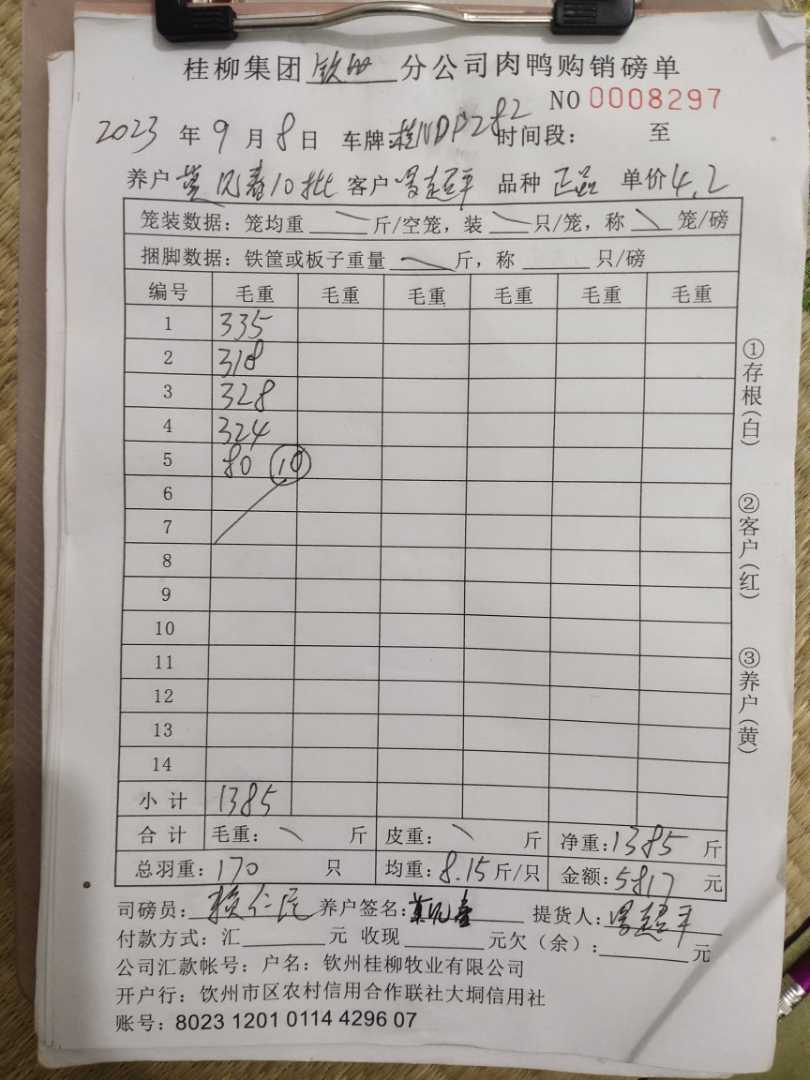 桂柳集团钦州分公司肉鸭购销磅单
NO 0008297
2023年9月8日 车牌:桂NDP282 时间段: 至
养户 莫凤春10批 客户 曾超平 品种 正品 单价4.2
笼装数据:笼均重 斤/空笼,装 只/笼,称 笼/磅
捆脚数据:铁筐或板子重量 斤,称 只/磅
编号 毛重 毛重 毛重 毛重 毛重 毛重
1 335
2 318
3 328
4 324
5 80 10
6
7
8
9
10
11
12
13
14
小计 1385
合计 毛重: 斤 皮重: 斤 净重:1385斤
总羽重:170只 均重:8.15斤/只 金额:5817元
司磅员:赖仁 养户签名:莫凤春 提货人:曾超平
付款方式:汇 元 收现 元欠(余): 元
公司汇款帐号:户名:钦州桂柳牧业有限公司
开户行:钦州市区农村信用合作联社大垌信用社
账号:8023 1201 0114 4296 07
①存根(白)
②客户(红)
③养户(黄)